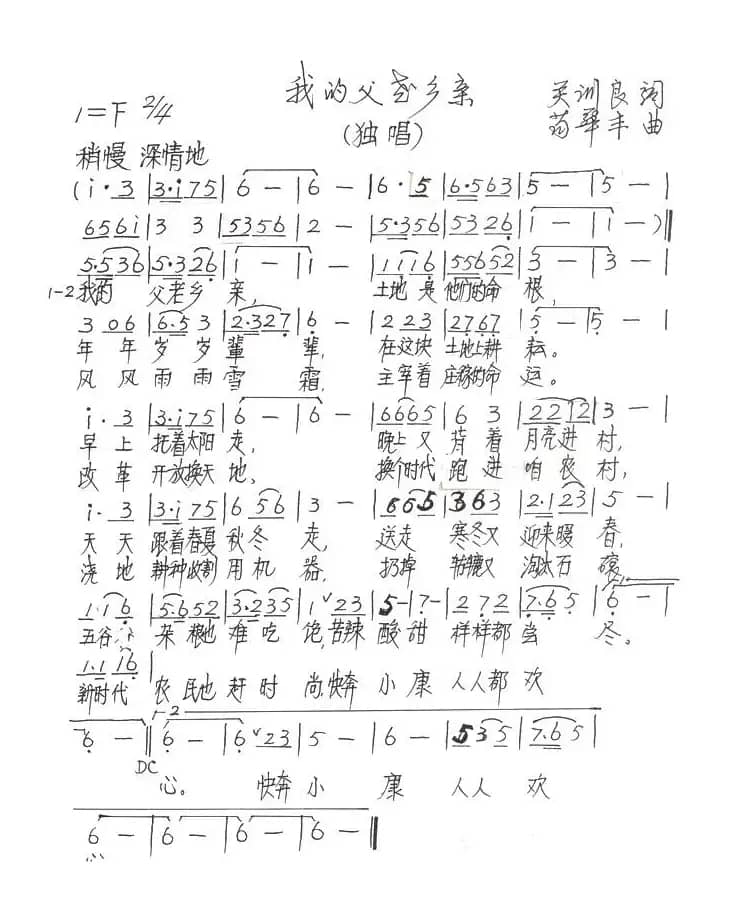 我的父老乡亲
(独唱)
1=F 2/4
吴训良 词
苗华丰 曲
稍慢 深情地
(i· 3 |3·i 75 | 6 — | 6 — | 6· 5 | 6·563 | 5 — | 5 — |
656i | 3 3 | 5356 | 2 — | 5·356 | 5326 | 1 — | 1 — )‖
5·536 | 5·326 | 1 — | 1 — | 1116 | 55652 | 3 — | 3 — |
1-2 我的 父老乡 亲, 土地 是 他们的命 根,
3 06 | 6·5 3 | 2·327 | 6 — | 2 23 | 2767 | 5 — | 5 — |
年 年 岁 岁 辈 辈, 在这块 土地上耕 耘。
风 风 雨 雨 雪 霜, 主宰着 庄稼的命 运。
i· 3 | 3·i 75 | 6 — | 6 — | 6665 | 6 3 | 2212 | 3 — |
早 上 托着太阳 走, 晚上 又 背 着 月亮进 村,
改 革 开放换天 地, 换个时代 跑 进 咱 农 村,
i· 3 | 3·i 75 | 6 56 | 3 — | 665 | 363 | 2·123 | 5 — |
天 天 跟着春夏 秋冬 走, 送走 寒冬又 迎来暖 春,
浇 地 耕种收割 用 机 器, 扔掉 又 淘汰石 磙
1·16 | 5·652 | 3·235 | 1 ˅23 | 5— | 7— | 272 | 7·65 | 6 — |
五谷 杂 粮也 难 吃 饱, 苦辣 酸 甜 样样都 尝 尽。
1·116 |
新时代 农 民也 赶 时 尚快奔 小 康 人人都 欢
1-2
6 — ‖ 6 — | 6 ˅23 | 5 — | 6 — | 535 | 7·65 |
DC
心。 快奔 小 康 人人 欢
6 — | 6 — | 6 — | 6 — ‖
心